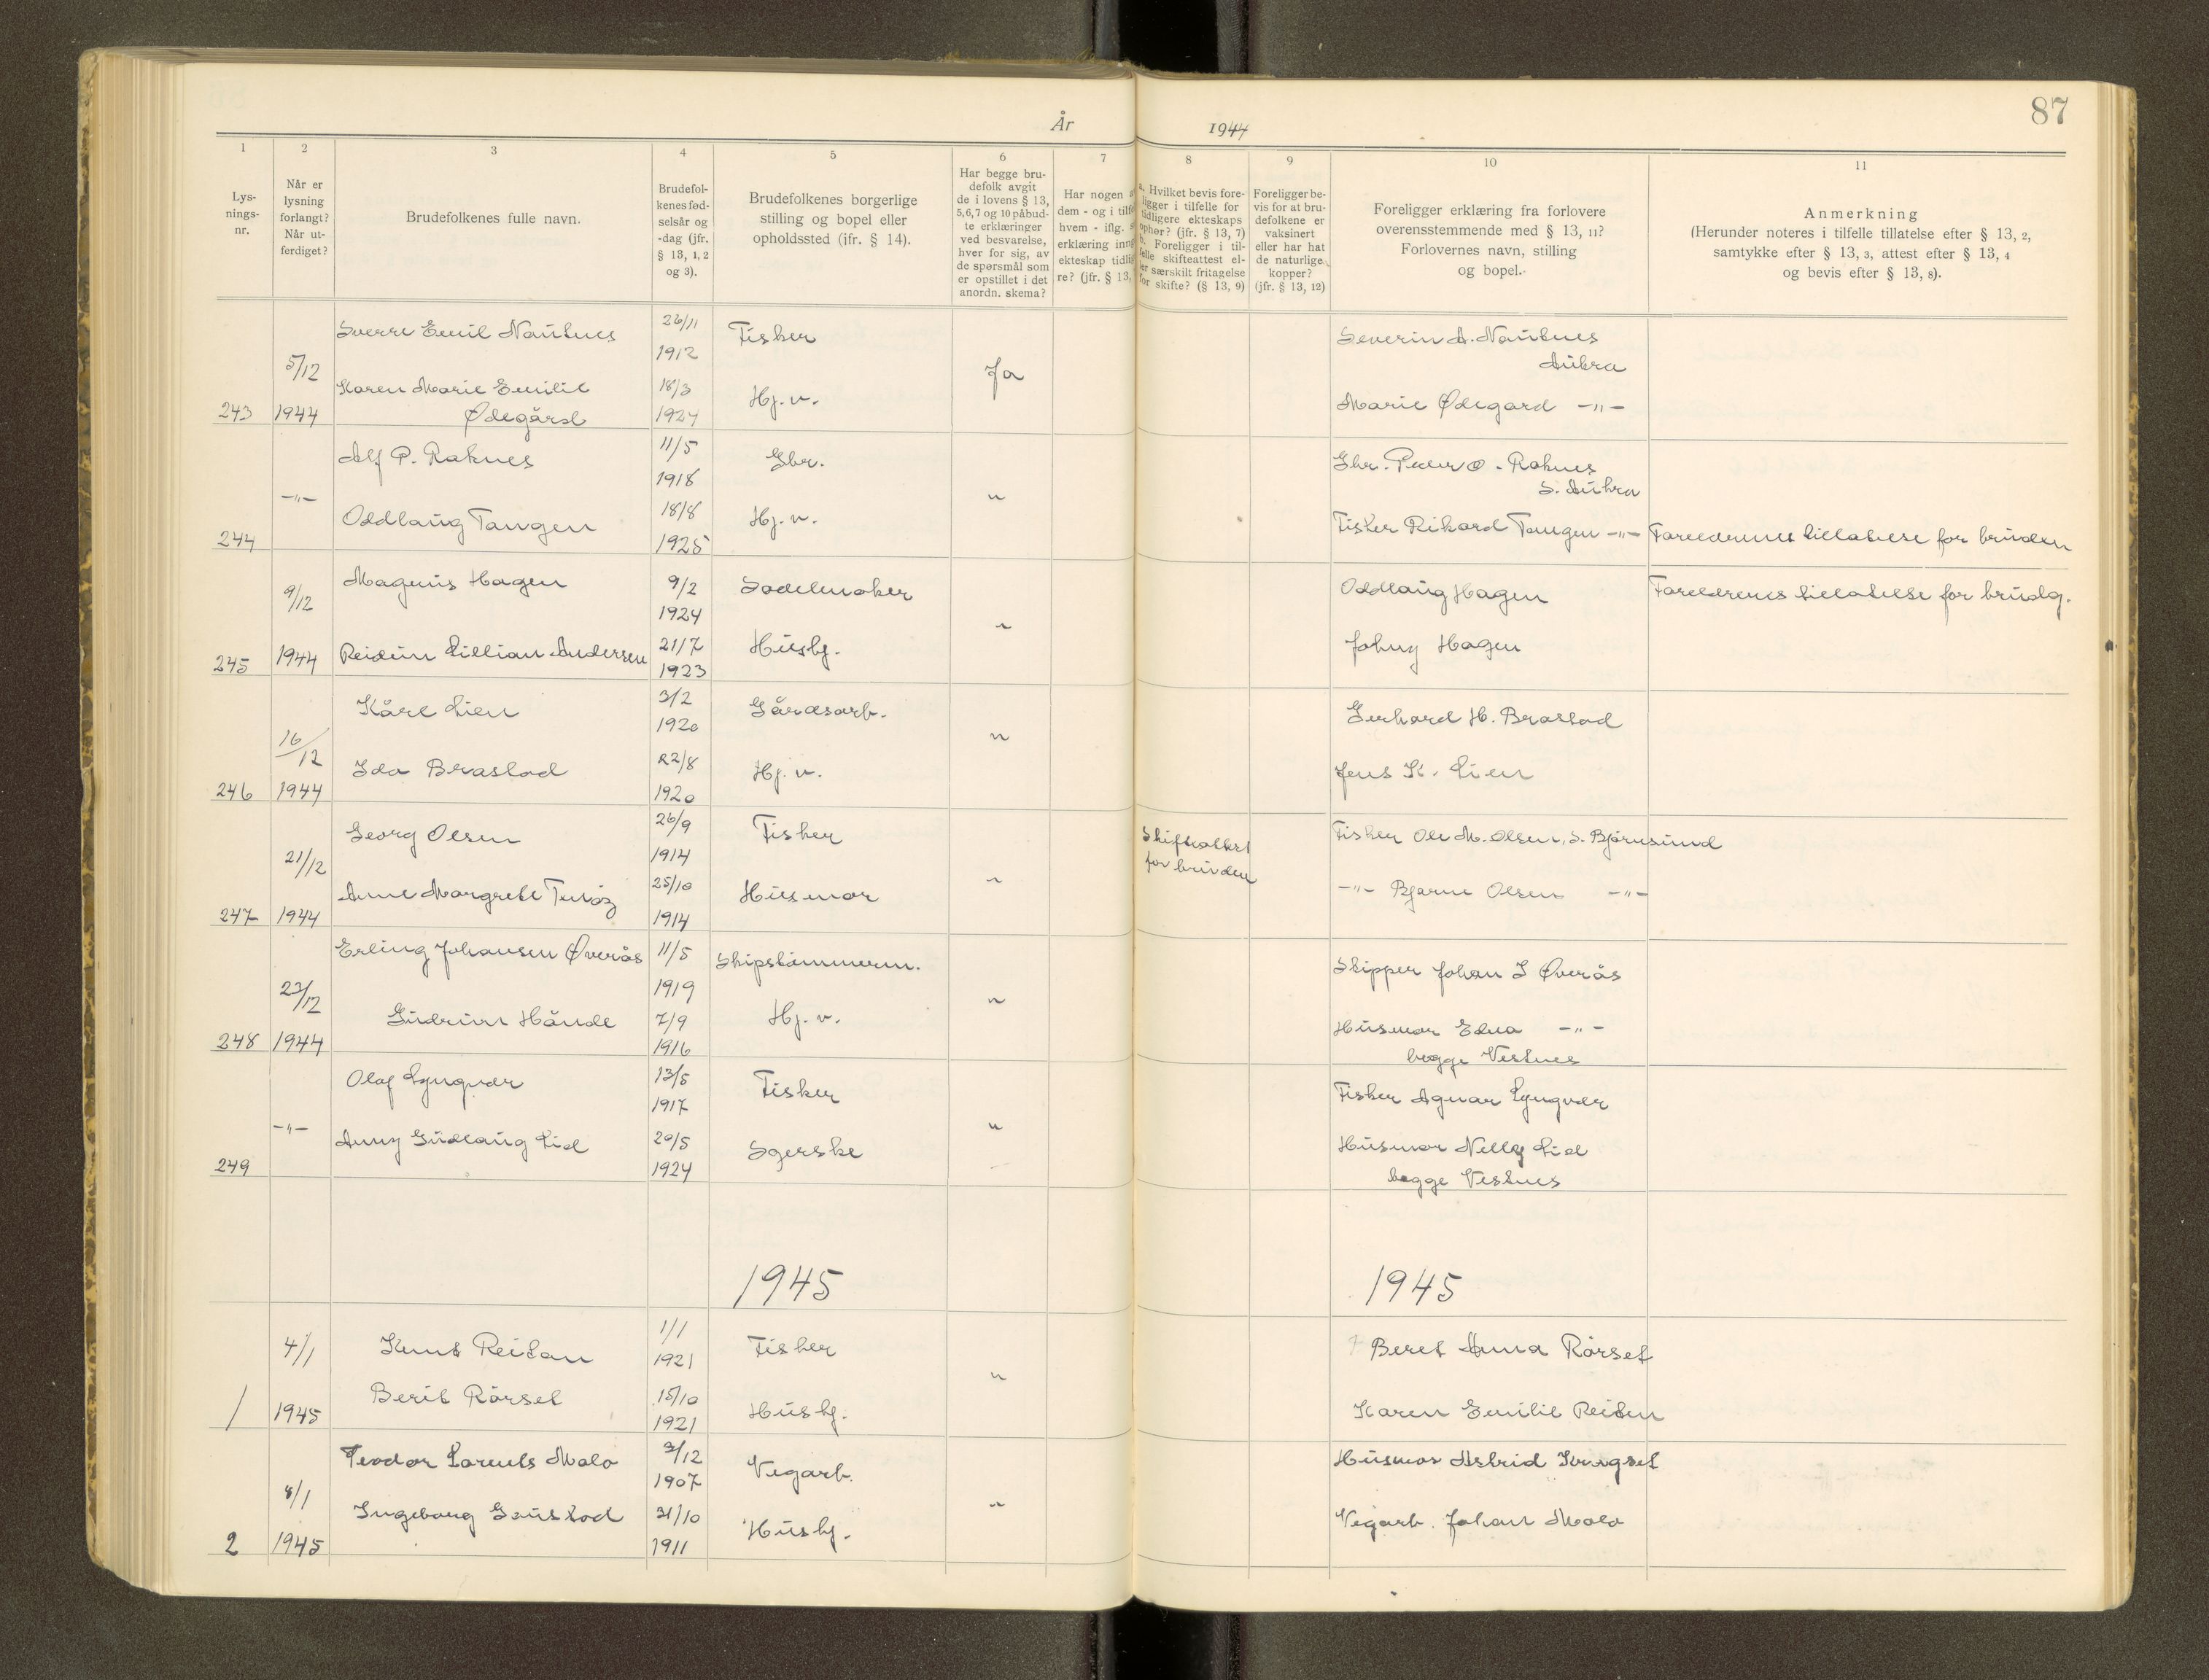 87
År 1944
1 2 3 4 5 6 7 8 9 10 11
Lys-
nings-
nr.
Når er
lysning
forlangt?
Når ut-
ferdiget?
Brudefolkenes fulle navn.
Brudefol-
kenes fød-
selsår og
-dag (jfr.
§ 13, 1, 2
og 3).
Brudefolkenes borgerlige
stilling og bopel eller
opholdssted (ifr. § 14).
Har begge bru-
defolk avgit
de i lovens § 13,
5, 6, 7 og 10 påbud-
te erklæringer
ved besvarelse,
hver for sig, av
de spørsmål som
er opstillet i det
anordn. skema?
Har nogen
dem - og i
hvem - iflg.
erklæring
ekteskap
re? (jfr. § 13,
Hvilket bevis fore-
ligger i tilfelle for
tidligere ekteskaps
ophør? (jfr. § 13, 7)
Foreligger i til-
felle skifteattest el-
ler særskilt fritagelse
for skifte? (§ 13, 9)
Foreligger be-
vis for at bru-
defolkene er
vaksinert
eller har hat
de naturlige
kopper?
(jfr. § 13, 12)
Foreligger erklæring fra forlovere
overensstemmende med § 13, 11?
Forlovernes navn, stilling
og bopel.
Anmerkning
(Herunder noteres i tilfelle tillatelse efter § 13, 2,
samtykke efter § 13, 3, attest efter § 13, 4
og bevis efter § 13, 8).
Sverre Emil Nautnes 26/11 Fisker Severin A. Nautnes
1912 Aukra
5/12 Ja
Karen Marie Emilie 18/3 Hj.v.
243 1944 Ødegård 1924 Marie Ødegard -"-
Alf P. Raknes 11/5 Gbr. Gbr. Peder O. Raknes
1918 S. Aukra
-"- "
Oddlaug Tangen 18/8 Hj.v. Fisker Rikard Tangen -"- Foreldrenes tillatelse for bruden
244 1925
Magnus Hagen 9/2 Sadelmaker Oddlaug Hagen Foreldrenes tillatelse for brudg.
9/12 1924 "
245 1944 Reidun Lillian Andersen 21/7 Husbj. Johny Hagen
1923
Kåre Lien 3/2 Gårdsarb. Gerhard H. Brastad
16/12 1920 "
Ida Brastad 22/8 Hj.v. Jens K. Lien
246 1944 1920
Georg Olsen 26/9 Fisker Skifteattest Fisker Ole M. Olsen, S. Bjørnsund
21/12 1914 " for bruden
Anne Margrete 25/10 Husmor -"- Bjarne Olsen -"-
247 1944 1914
Erling Johansen Øverås 11/5 Skipstømmerm. Skipper Johan I Øverås
23/12 1919 "
Gudrun Hånde 7/9 Hj.v. Husmor Edna -"-
248 1944 1916 begge Vestnes
Olaf Lyngvær 13/5 Fisker Fisker Agnar Lyngvær
1917
-"- "
Anny Gudlaug Lid 20/5 Syerske Husmor Nelly Lid
249 1924 begge Vestnes
1945 1945
4/1 Knut Reitan 1/1 Fisker Beret Anna Rørset
1921 "
Berit Rørset 15/10 Husbj. Karen Emilie Reitan
1 1945 1921
Teodor Lorents Malo 2/12 Vegarb. Husmor Astrid Kringset
8/1 1907 "
Ingeborg Gaustad 31/10 Husbj. Vegarb. Johan Malo
2 1945 1911